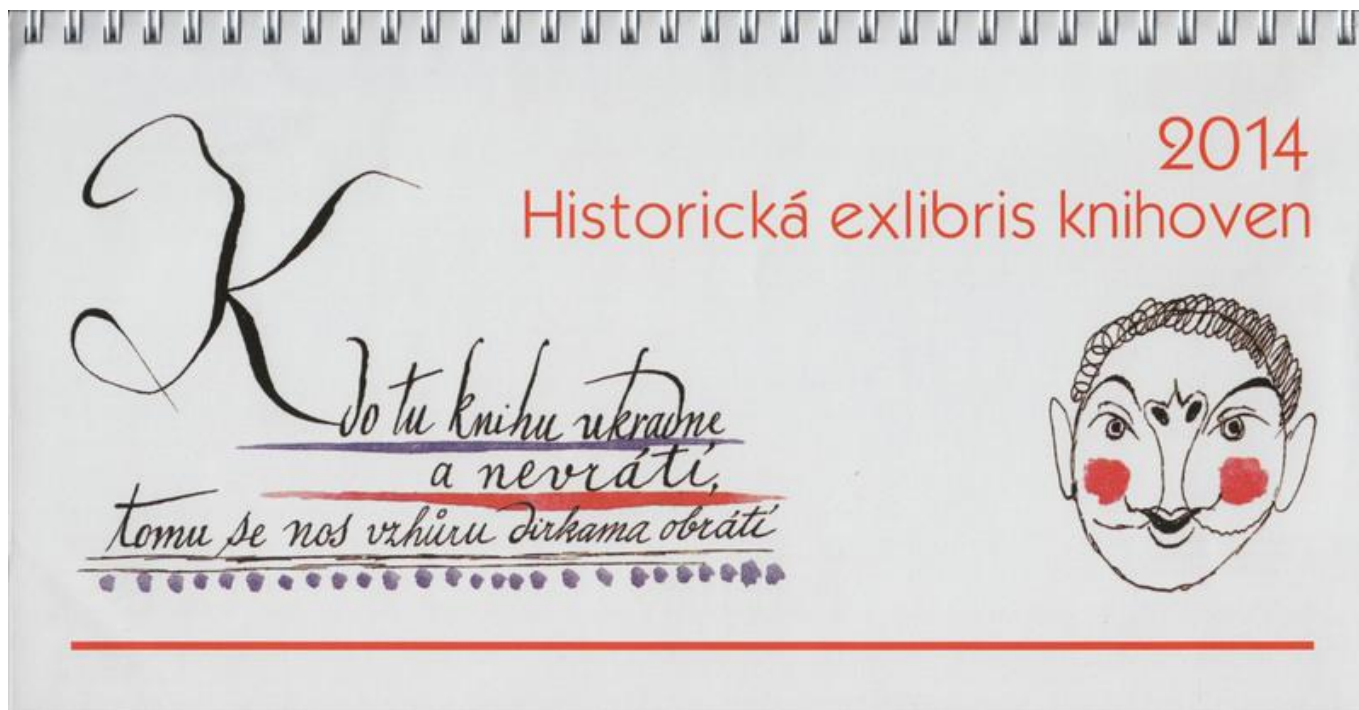 2014
Historická exlibris knihoven
Kdo tu knihu ukradne
a nevrátí,
tomu se nos vzhůru dirkama obrátí